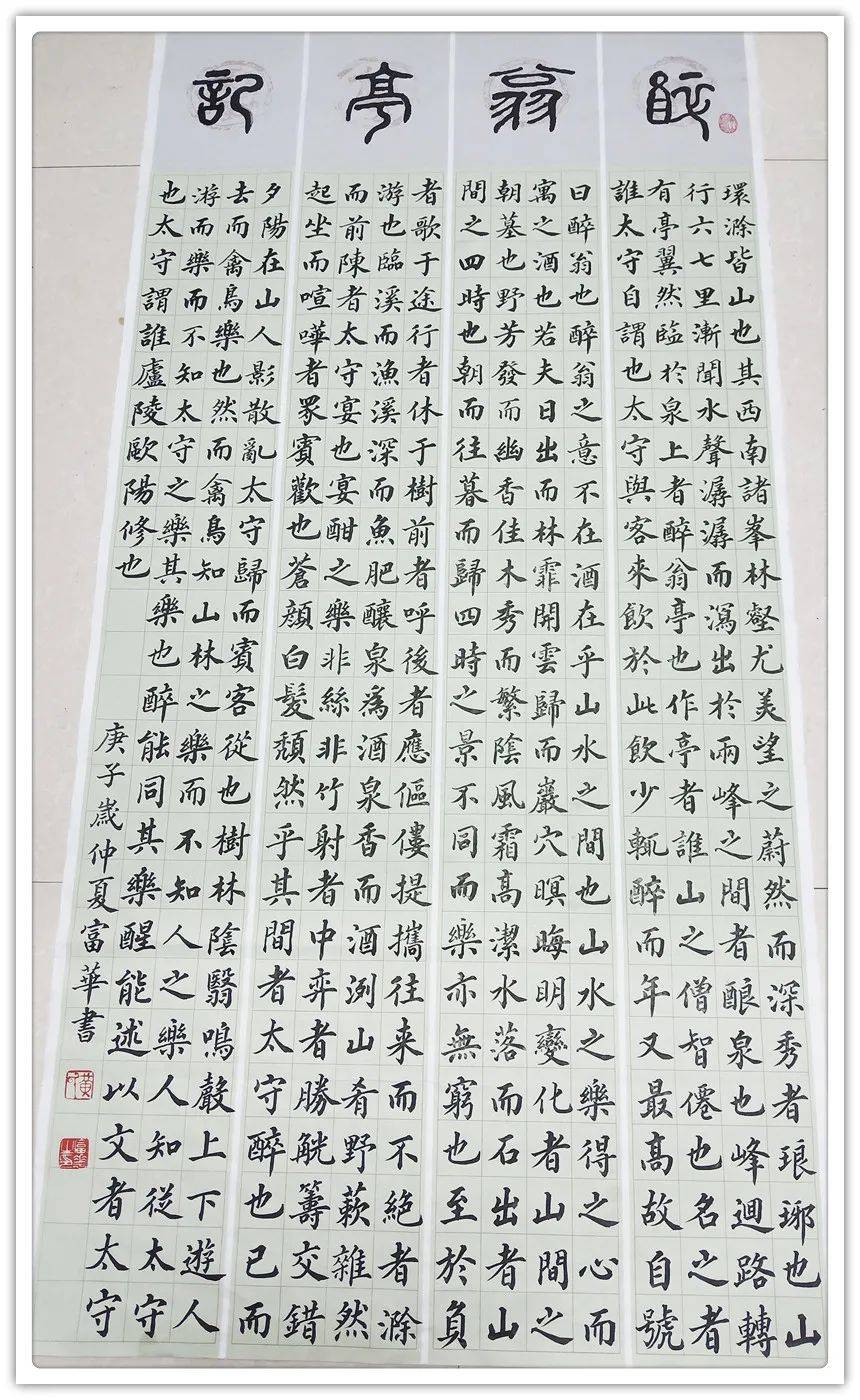 醉翁亭記
環滁皆山也其西南諸峯林壑尤美望之蔚然而深秀者琅琊也山
行六七里漸聞水聲潺潺而瀉出於兩峰之間者酿泉也峰迴路轉
有亭翼然臨於泉上者醉翁亭也作亭者誰山之僧智僊也名之者
誰太守自謂也太守與客來飲於此飲少輒醉而年又最高故自號
曰醉翁也醉翁之意不在酒在乎山水之間也山水之樂得之心而
寓之酒也若夫日出而林霏開雲歸而巖穴暝晦明變化者山間之
朝墓也野芳發而幽香佳木秀而繁陰風霜高潔水落而石出者山
間之四時也朝而往暮而歸四時之景不同而樂亦無窮也至於負
者歌于途行者休于樹前者呼後者應傴僂提攜往来而不絕者滁
游也臨溪而漁溪深而魚肥釀泉爲酒泉香而酒洌山肴野蔌雜然
而前陳者太守宴也宴酣之樂非絲非竹射者中弈者勝觥籌交錯
起坐而喧嘩者眾賓歡也蒼顏白髮頹然乎其間者太守醉也已而
夕陽在山人影散亂太守歸而賓客從也樹林陰翳鳴聲上下遊人
去而禽鳥樂也然而禽鳥知山林之樂而不知人之樂人知從太守
游而樂而不知太守之樂其樂也醉能同其樂醒能述以文者太守
也太守謂誰廬陵歐陽修也
庚子歲仲夏富華書